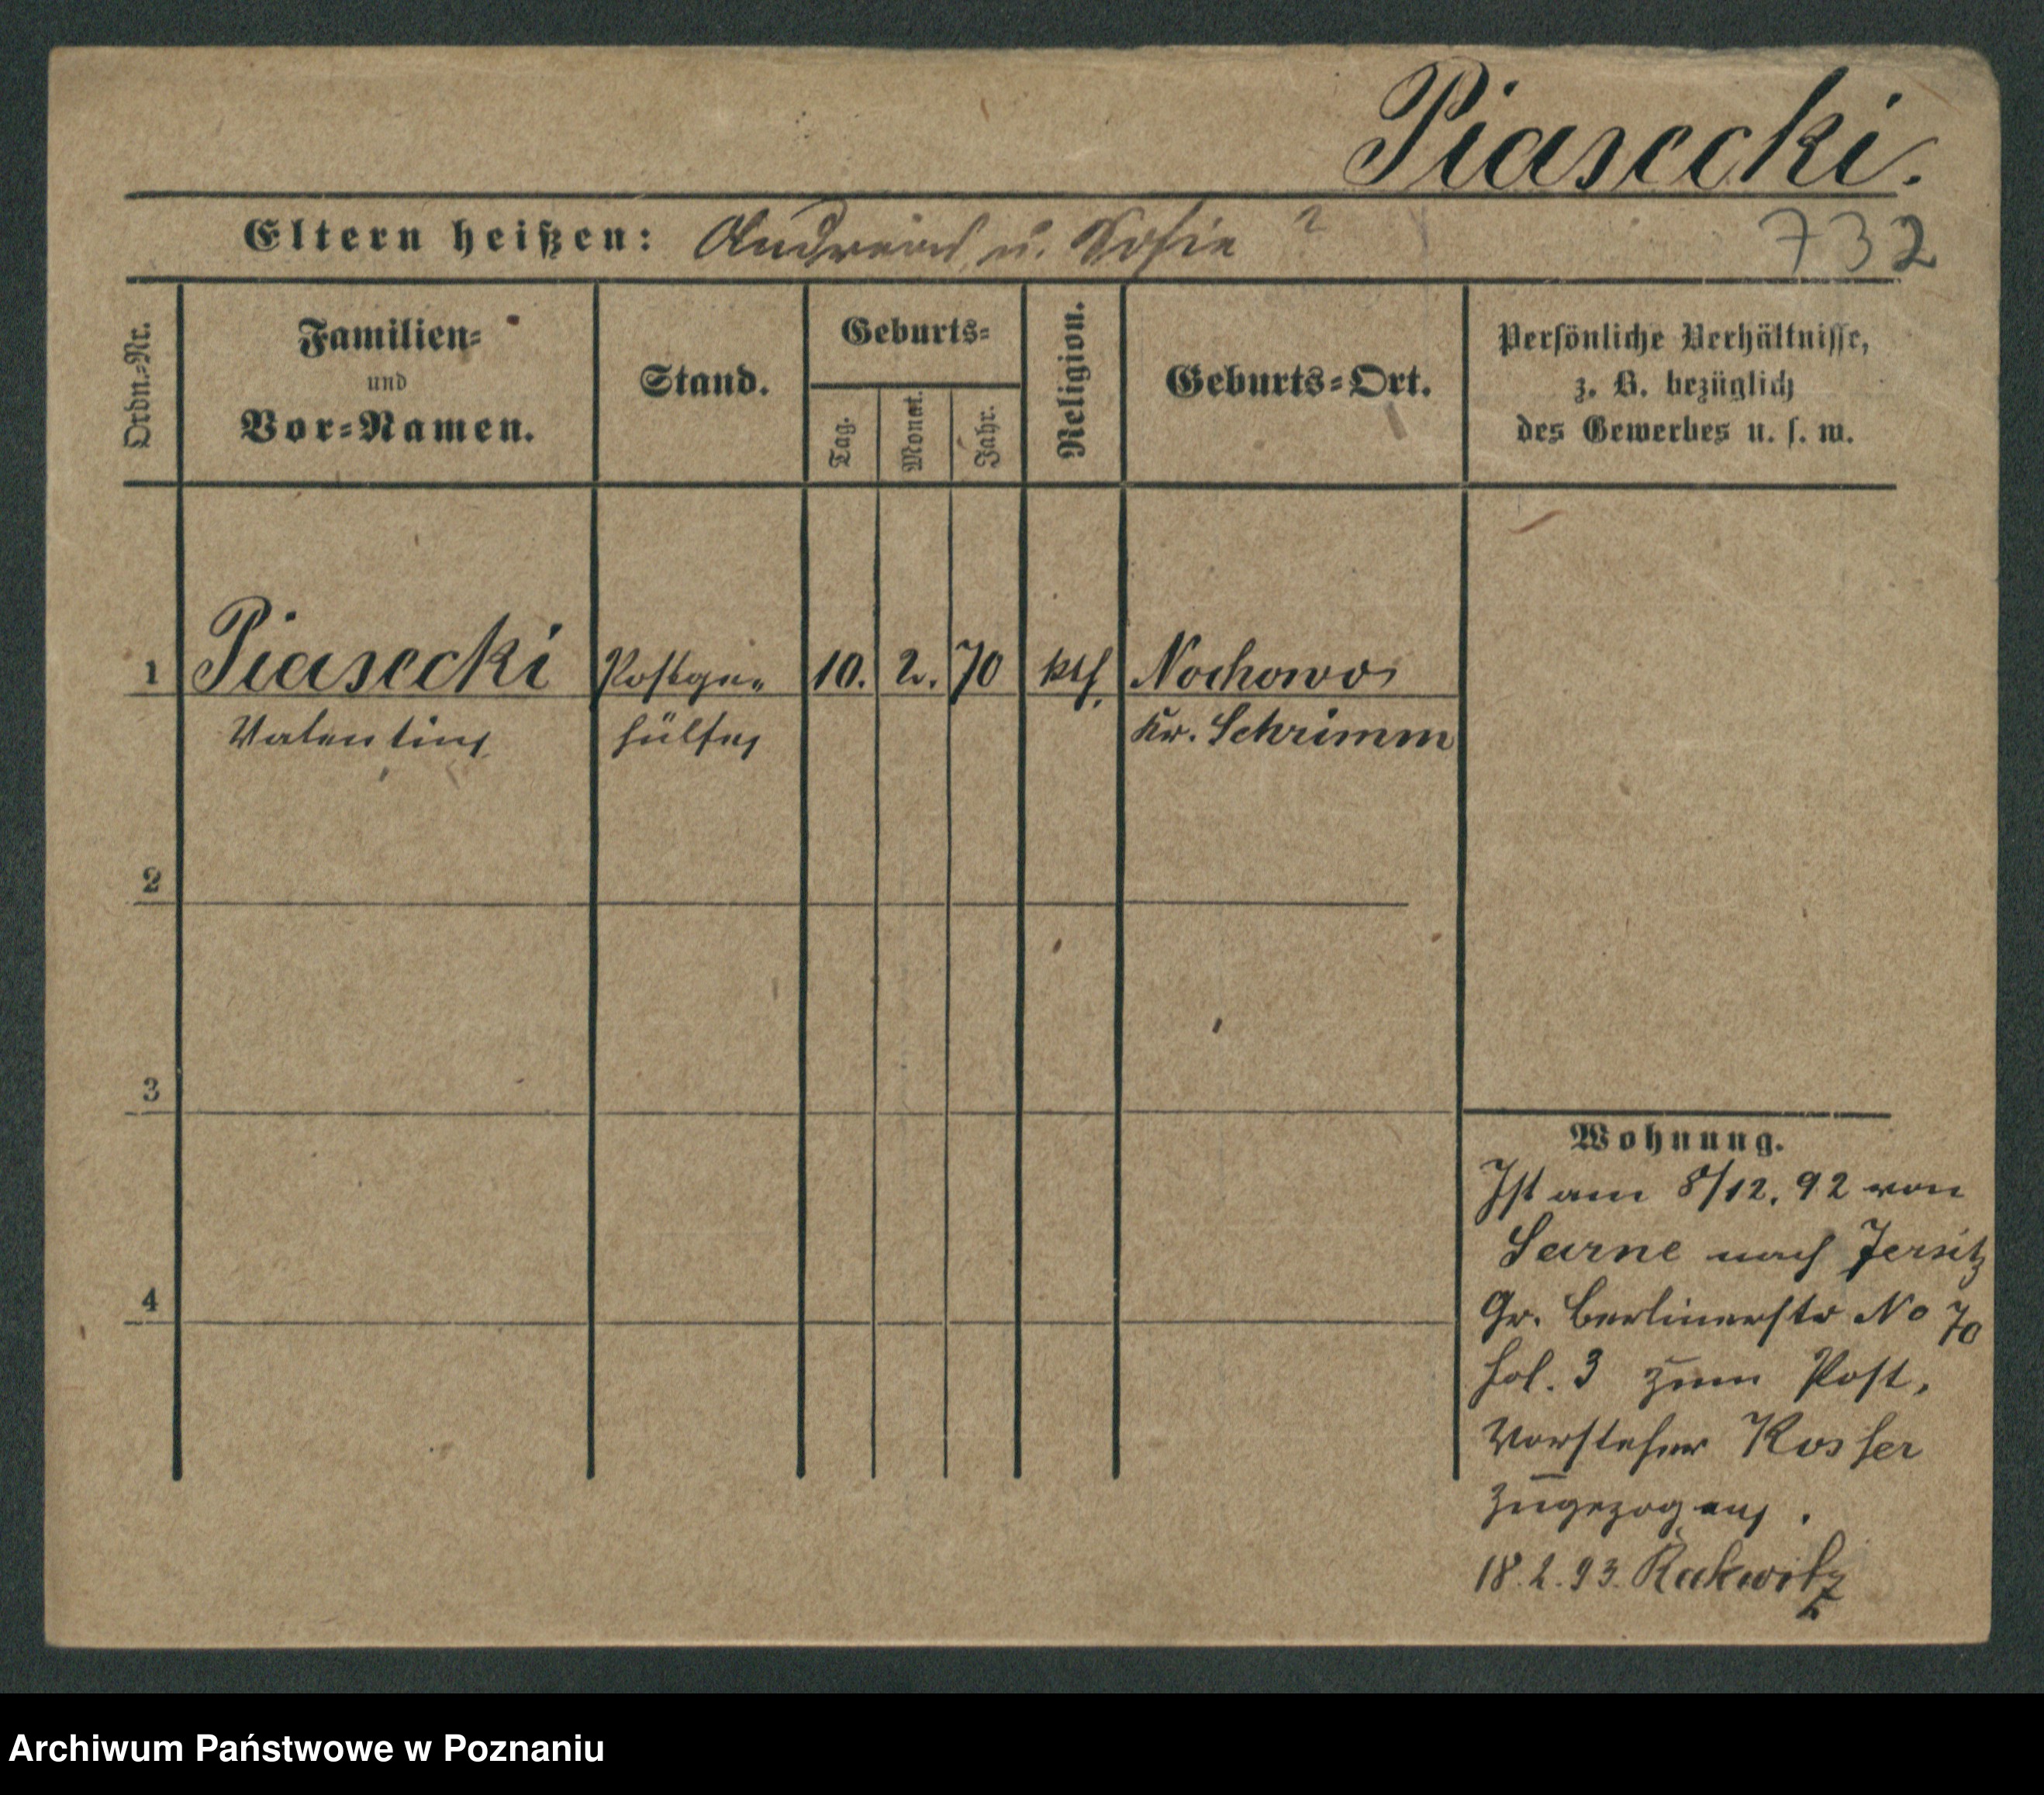 Piasecki.
Eltern heißen: Andreas u. Sofie ?
732
Ordn.-Nr.
Familien-
und
Vor-Namen.
Stand.
Geburts-
Tag.
Monat.
Jahr.
Religion.
Geburts-Ort.
Persönliche Verhältnisse,
z. B. bezüglich
des Gewerbes u. s. w.
1 Piasecki Postge- 10. 2. 70 kth. Nochowo
Valentin hülfe Kr. Schrimm
2
3
4
Wohnung.
Ist am 8/12. 92 von
Sarne nach Jersitz
Gr. Berlinerstr No 70
fol. 3 zum Post,
Vorsteher
zugezogen.
18.2.93. Rakwitz
Archiwum Państwowe w Poznaniu